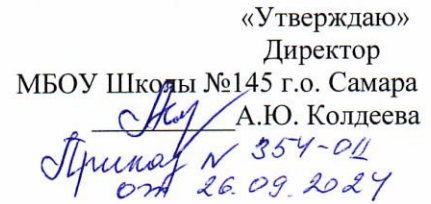 «Утверждаю»
Директор
МБОУ Школы №145 г.о. Самара
А.Ю. Колдеева
Приказ N 354-од
от 26.09.2024